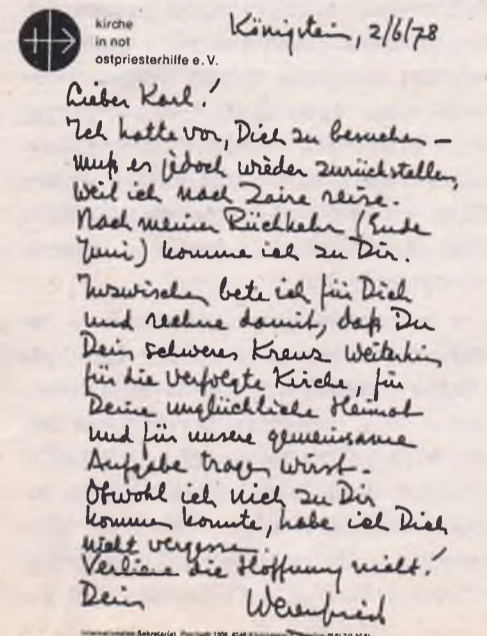 kirche
in not
ostpriesterhilfe e.V.
Königstein, 2/6/78
Lieber Karl!
Ich hatte vor, Dich zu besuchen –
muß es jedoch wieder zurückstellen,
weil ich nach Zaire reise.
Nach meiner Rückkehr (Ende
Juni) komme ich zu Dir.
Inzwischen bete ich für Dich
und rechne damit, daß Du
Dein schweres Kreuz weiterhin
für die verfolgte Kirche, für
Deine unglückliche Heimat
und für unsere gemeinsame
Aufgabe tragen wirst.
Obwohl ich nich zu Dir
kommen konnte, habe ich Dich
nicht vergessen.
Verliere die Hoffnung nicht!
Dein Werenfried
Internationales Sekretariat